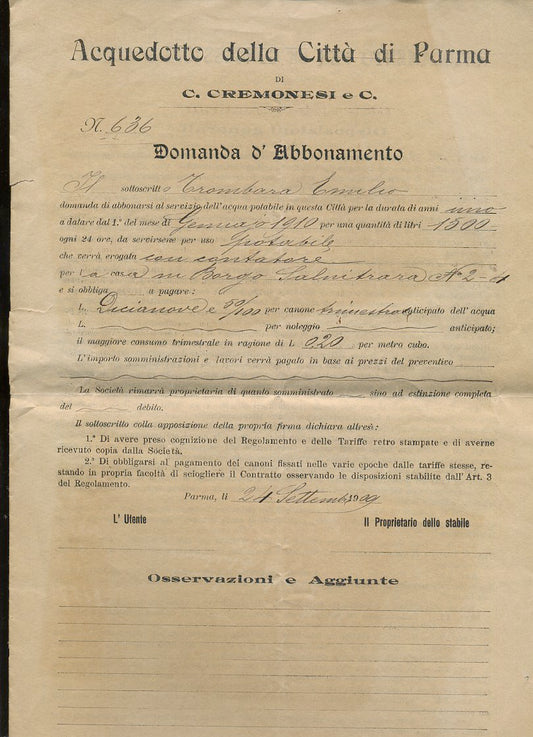 Acquedotto della Città di Parma
DI
C. CREMONESI e C.
N. 636
Domanda d' Abbonamento
Il sottoscritto Trombara Emilio
domanda di abbonarsi al servizio dell'acqua potabile in questa Città per la durata di anni uno
a datare dal 1.° del mese di Gennajo 1910 per una quantità di litri 1500
ogni 24 ore, da servirsene per uso potabile
che verrà erogata con contatore
per la casa in Borgo Salnitrara N° 2-4
e si obbliga a pagare:
L. Dicianove e 50/100 per canone trimestre anticipato dell' acqua
L. per noleggio anticipato;
il maggiore consumo trimestrale in ragione di L 0,20 per metro cubo.
L'importo somministrazioni e lavori verrà pagato in base ai prezzi del preventivo
La Società rimarrà proprietaria di quanto somministrato sino ad estinzione completa
del debito.
Il sottoscritto colla apposizione della propria firma dichiara altresì:
1.° Di avere preso cognizione del Regolamento e delle Tariffe retro stampate e di averne
ricevuto copia dalla Società.
2.° Di obbligarsi al pagamento dei canoni fissati nelle varie epoche dalle tariffe stesse, re-
stando in propria facoltà di sciogliere il Contratto osservando le disposizioni stabilite dall'Art. 3
del Regolamento.
Parma, li 24 Settemb 1909
L' Utente Il Proprietario dello stabile
Osservazioni e Aggiunte